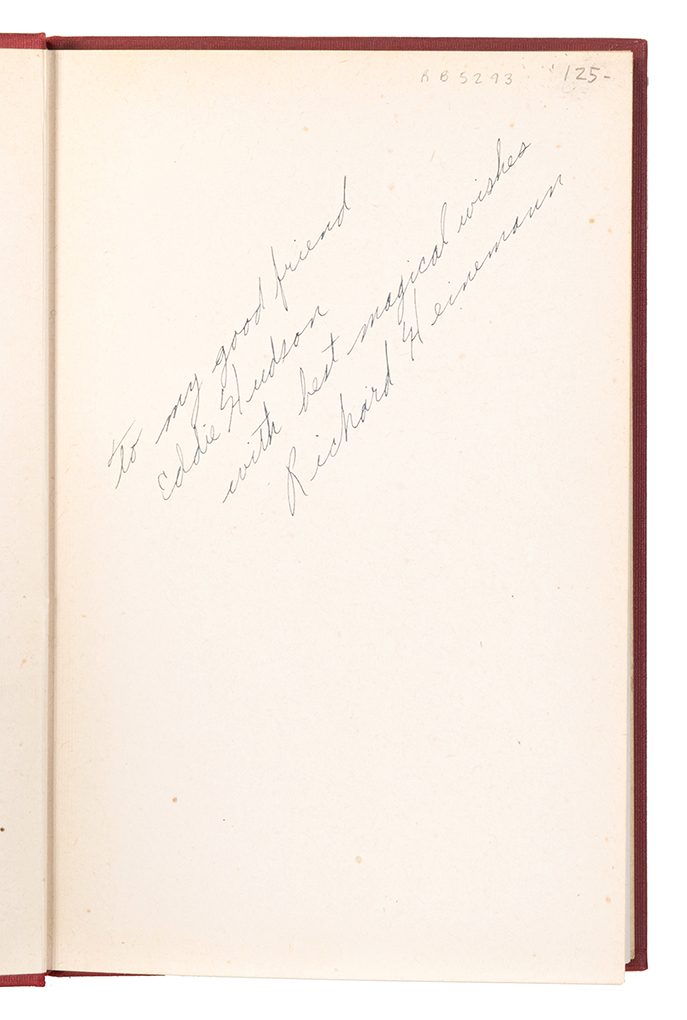 RB5293 125-
to my good friend
Eddie Hudson
with best magical wishes
Richard Heinemann